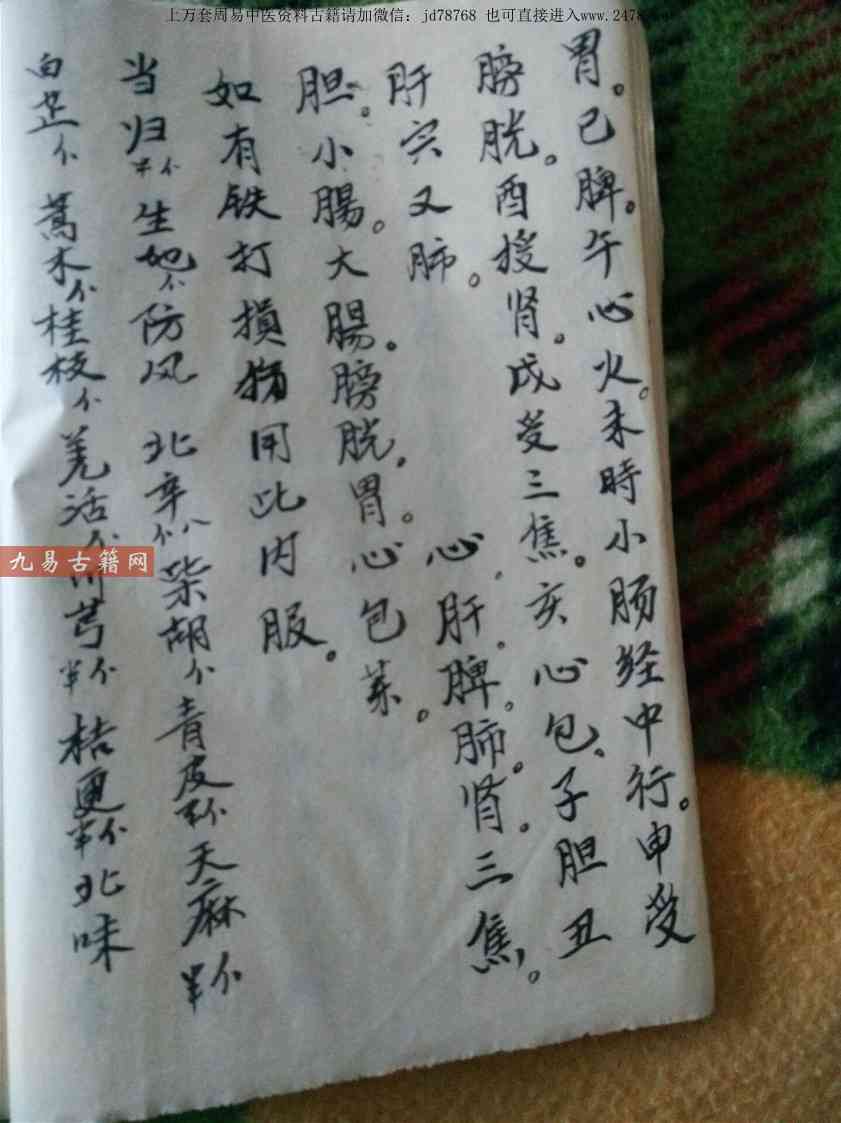 上万套周易中医资料古籍请加微信：jd78768 也可直接进入www.247
胃。己脾。午心火。未時小肠经中行。申受
膀胱。酉授肾。戌受三焦。亥心包、子胆丑
肝寅又肺。心，肝，脾。肺。肾。三焦。
胆。小腸。大腸。膀胱。胃。心包
如有铁打損 用此内服。
当归半个生地个防风 北辛个八柴胡个青皮半个天麻半个
白芷个 蒿木个桂枝个羌活个川芎半个桔更半个北味
九易古籍网